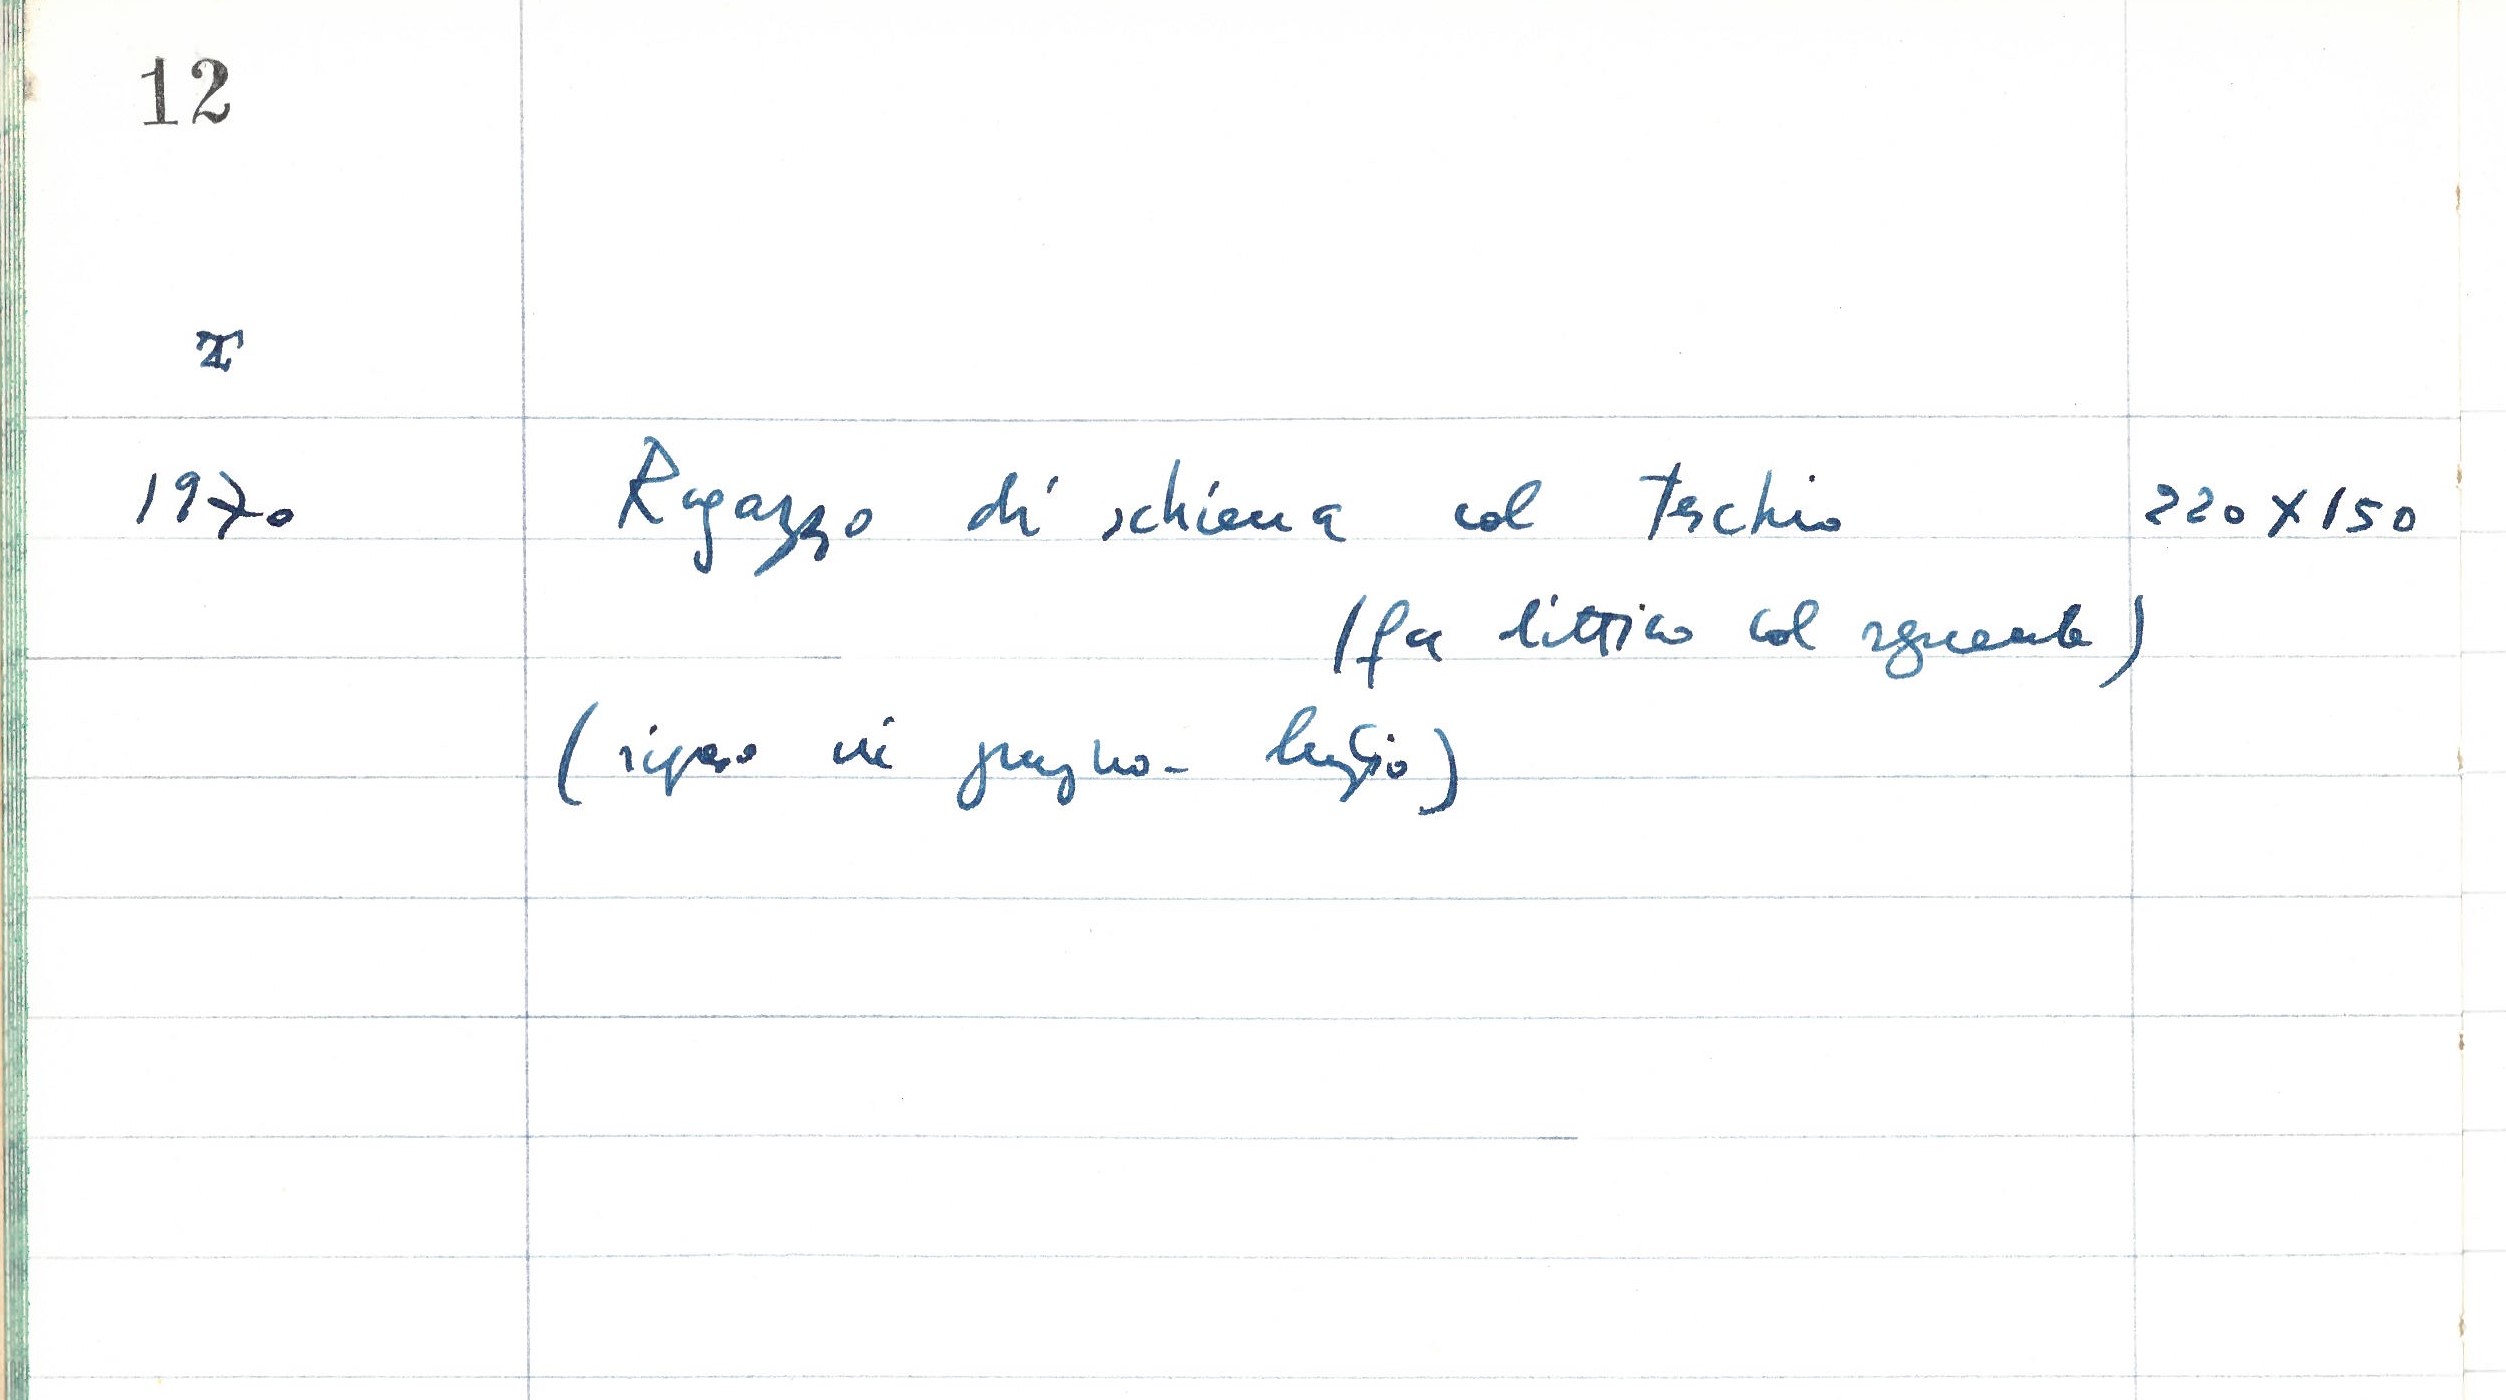 12
1970 Ragazzo di schiena col Teschio 220X150
(fa dittico col seguente)
(ripreso in giugno - luglio)